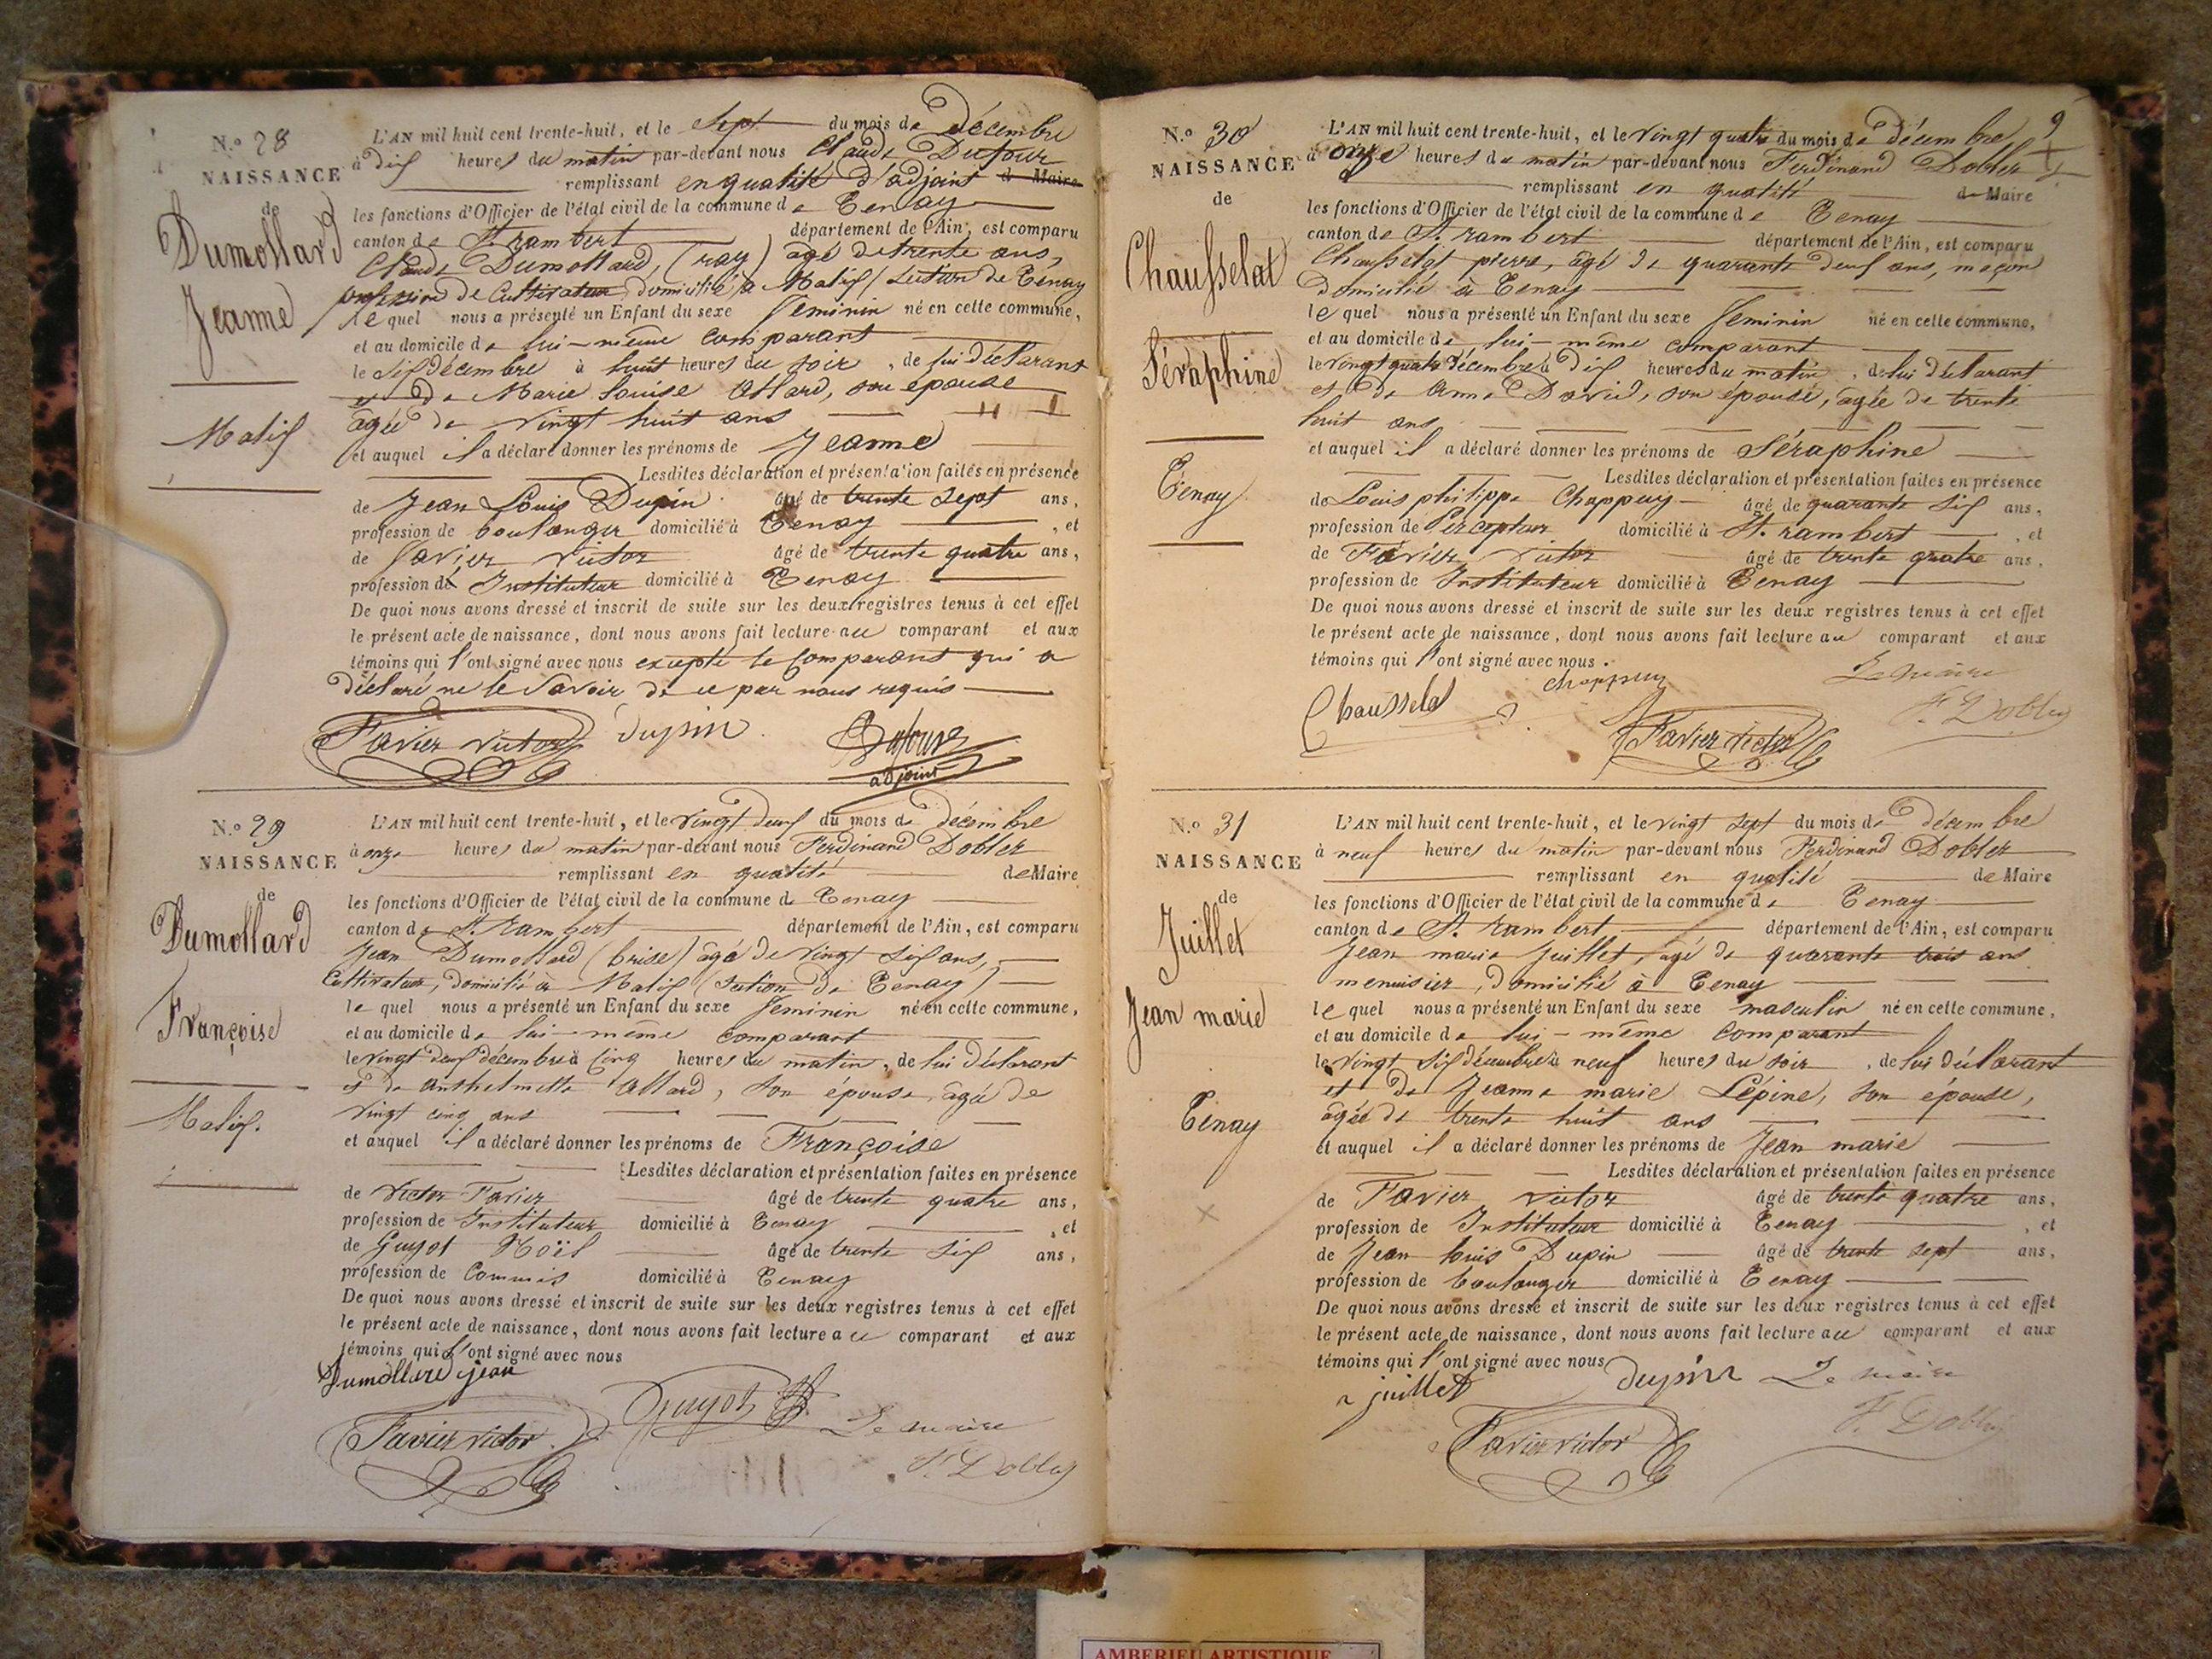 N.º 28
NAISSANCE
de
Dumollard
Jeanne
Malix
L'AN mil huit cent trente-huit, et le Sept du mois de Décembre
à dix heures du matin par-devant nous Claude Dufour
remplissant en qualité d'adjoint de Maire
les fonctions d'Officier de l'état civil de la commune de Tenay
canton de St. rambert département de l'Ain, est comparu
Claude Dumollard, (ray) agé de trente ans,
profession de Cultivateur domicilié à Malix (Section de Tenay
le quel nous a présenté un Enfant du sexe feminin né en cette commune,
et au domicile de lui-même comparant
le six décembre à huit heures du soir, de lui déclarant
et de Marie Louise Allard, son épouse
agée de vingt huit ans
et auquel il a déclaré donner les prénoms de Jeanne
Lesdites déclaration et présentation faites en présence
de Jean Louis Dupin âgé de trente sept ans,
profession de boulanger domicilié à Tenay, et
de Favier Victor âgé de trente quatre ans,
profession de Instituteur domicilié à Tenay
De quoi nous avons dressé et inscrit de suite sur les deux registres tenus à cet effet
le présent acte de naissance, dont nous avons fait lecture au comparant et aux
témoins qui l'ont signé avec nous excepté le Comparant qui a
déclaré ne le Savoir de ce par nous requis
Favier victor dupin Dufour
adjoint
N.º 29
NAISSANCE
de
Dumollard
Françoise
Malix.
L'AN mil huit cent trente-huit, et le vingt deux du mois de décembre
à onze heures du matin par-devant nous Ferdinand Dobler
remplissant en qualité de Maire
les fonctions d'Officier de l'état civil de la commune de Tenay
canton de St. rambert département de l'Ain, est comparu
Jean Dumollard (brise) âgé de vingt six ans,
Cultivateur, domicilié à Malix (Section de Tenay)
le quel nous a présenté un Enfant du sexe feminin né en cette commune,
et au domicile de lui-même comparant
le vingt deux décembre à cinq heures du matin, de lui déclarant
et de Anthelmette Allard, son épouse, agée de
vingt cinq ans
et auquel il a déclaré donner les prénoms de Françoise
Lesdites déclaration et présentation faites en présence
de Victor Favier âgé de trente quatre ans,
profession de Instituteur domicilié à Tenay, et
de Guyot Noël âgé de trente six ans,
profession de Commis domicilié à Tenay
De quoi nous avons dressé et inscrit de suite sur les deux registres tenus à cet effet
le présent acte de naissance, dont nous avons fait lecture au comparant et aux
témoins qui l'ont signé avec nous
Dumollard jean
Favier victor Guyot Le maire
F. Dobler
9
N.º 30
NAISSANCE
de
Chausselat
Séraphine
Tenay
L'AN mil huit cent trente-huit, et le vingt quatre du mois de décembre
à onze heures du matin par-devant nous Ferdinand Dobler
remplissant en qualité de Maire
les fonctions d'Officier de l'état civil de la commune de Tenay
canton de St. rambert département de l'Ain, est comparu
Chausselat pierre, âgé de quarante deux ans, maçon
Domicilié à Tenay
le quel nous a présenté un Enfant du sexe feminin né en cette commune,
et au domicile de lui-même comparant
le vingt quatre décembre à dix heures du matin, de lui déclarant
et de Anne David, son épouse, agée de trente
huit ans
et auquel il a déclaré donner les prénoms de Séraphine
Lesdites déclaration et présentation faites en présence
de Louis philippe Chappuy âgé de quarante six ans,
profession de Percepteur domicilié à St. rambert, et
de Favier Victor âgé de trente quatre ans,
profession de Instituteur domicilié à Tenay
De quoi nous avons dressé et inscrit de suite sur les deux registres tenus à cet effet
le présent acte de naissance, dont nous avons fait lecture au comparant et aux
témoins qui l'ont signé avec nous.
Chausselat chappuy Le maire
Favier victor F. Dobler
N.º 31
NAISSANCE
de
Juillet
Jean marie
Tenay
L'AN mil huit cent trente-huit, et le vingt sept du mois de décembre
à neuf heures du matin par-devant nous Ferdinand Dobler
remplissant en qualité de Maire
les fonctions d'Officier de l'état civil de la commune de Tenay
canton de St. rambert département de l'Ain, est comparu
Jean marie Juillet, agé de quarante trois ans
menuisier, domicilié à Tenay
le quel nous a présenté un Enfant du sexe masculin né en cette commune,
et au domicile de lui-même comparant
le vingt six décembre à neuf heures du soir, de lui déclarant
et de Jeanne marie Lépine, son épouse,
agée de trente huit ans
et auquel il a déclaré donner les prénoms de Jean marie
Lesdites déclaration et présentation faites en présence
de Favier victor âgé de trente quatre ans,
profession de Instituteur domicilié à Tenay, et
de Jean louis Dupin âgé de trente sept ans,
profession de boulanger domicilié à Tenay
De quoi nous avons dressé et inscrit de suite sur les deux registres tenus à cet effet
le présent acte de naissance, dont nous avons fait lecture au comparant et aux
témoins qui l'ont signé avec nous
juillet dupin Le maire
Favier victor F. Dobler
AMBERIEU ARTISTIQUE